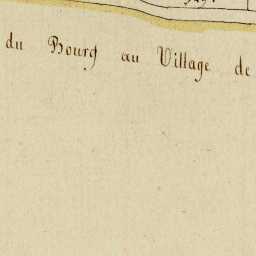 du Bourg au Village de